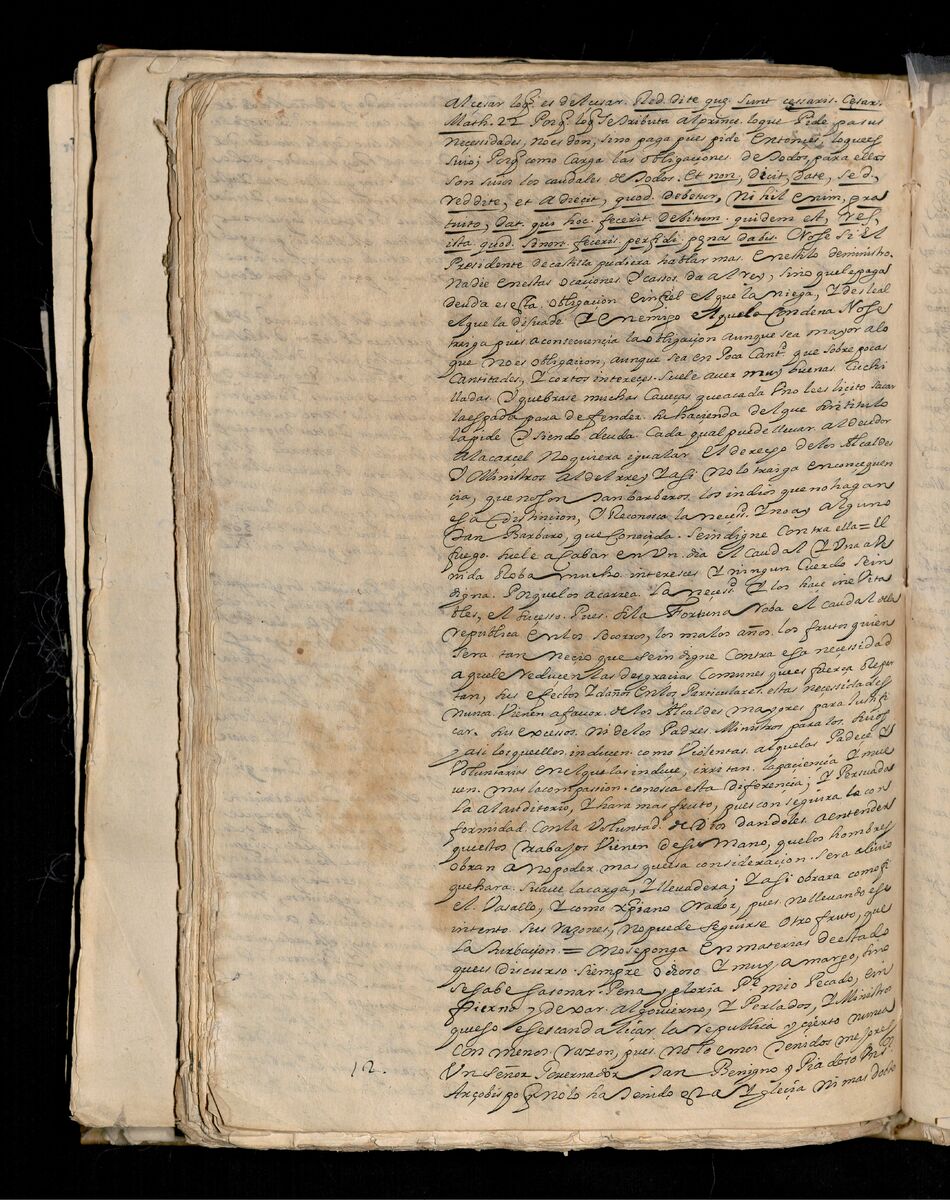 Al cesar loq̃. es del cesar. Red dite quę. sunt cessaris. Cesar.
Math. 22 Porq̃. loq̃. se tributa al princ. lo que Pide pa sus
necessidades, no es don, sino paga pues pide entonces, lo que es
suio; Porq̃ como Carga las obligaciones de todos, para ellas
son suios los caudales de todos. Et non, dicit, date, sed,
reddite, et adiecit, quod. debetur, Nihil enim, gra
tuito, dat. qui hoc. fecerit. debitum. quidem est, res,
ista. quod. si non. feceris. perfidi. pęnas dabis. No se si el
Presidente de castilla pudiera hablar mas. en estilo de ministro.
Nadie en estas ocaciones. y casos. da al rey, sino que le paga
deuda es esta. obligacion e infiel el que la niega, y desleal
el que la disuade y enemigo el que la condena No se
traiga pues a consecuencia la obligacion aunque sea mayor a lo
que no es obligacion, aunque sea en Poca Cantd. que sobre pocas
Cantitades, y cortos intereçes. suele aver muy buenas. Cuchi
lladas. y quebrase muchas Caueças que a cada vno le es licito sacar
la espada para defender. su haçienda del que sin titulo
la pide y siendo deuda. Cada qual puede lleuar. al deudor
a la carcel No quiera igualar el derecho de los Alcaldes
y Ministros al del rrey, y asi no lo traiga en conceguen
çia, que no son tan barbaros. los indios que no hagan
esa distincion, y Reconosca la neceçd. y no ay alguno
tan Barbaro, que conocida. se indigne contra ella = El
fuego. suele acabar en Un. dia el caudal y Una ave
nida Roba mucho. intereses y ningun Cuerdo se in
digna. Porque los acarrea. la neçeçd. y los haçe ineVita
bles, el suceso. Pues. si la Fortuna Roba el caudal de la
republica en los socorros, los malos años. los frutos quien
sera tan necio que se indigne contra esa necessidad
a que le reducen las desgracias comunes que es fuerça Repu
tan, sus efectos y daños en los. Particulares. estas necesidades
nunca. Vienen a fauor. de los Alcaldes mayores para lustifi
car. sus excesos. ni de los Padres. Ministros para los. suios
y asi los que ellos. inducen. como Violentas. al que las Padece y
Voluntarias en el que las induce, irritan. la paçiençia y mue
uen. mas la compassion. conosca esta diferencia; y Persuada
la al auditorio, y hara mas fruto, pues con seguira la con
formidad. Con la Voluntad. de Dios dandoles. a entender
que estos trabajos Vienen de su Mano, que los hombres
obran a no poder. mas que esa consideracion. sera aliuio
que hara. suaue la carga, y lleuadera; y asi obrara como fi
el. Vasallo, y como xpiano Orador, pues. no lleuando ese
intento. sus razones, no puede seguirse otro fruto, que
la turbacion. = No se ponga en materias de estado
que es discurso siempre odioso y muy amargo, sino
se sabe sasonar. Pena y gloria Pe. mio Pecado, ein
fierno y dexar. al gouierno, y Perlados, y Ministro
que eso es escandaliçar la republica y cierto nunca
Con menos razon, pues no lo emos tenidos mejores
Un señor Gouernador tan Benigno y Piadoso Un. sr.
Arçobispo q̃ no lo ha tenido esta Yglecia ni mas docto
12.